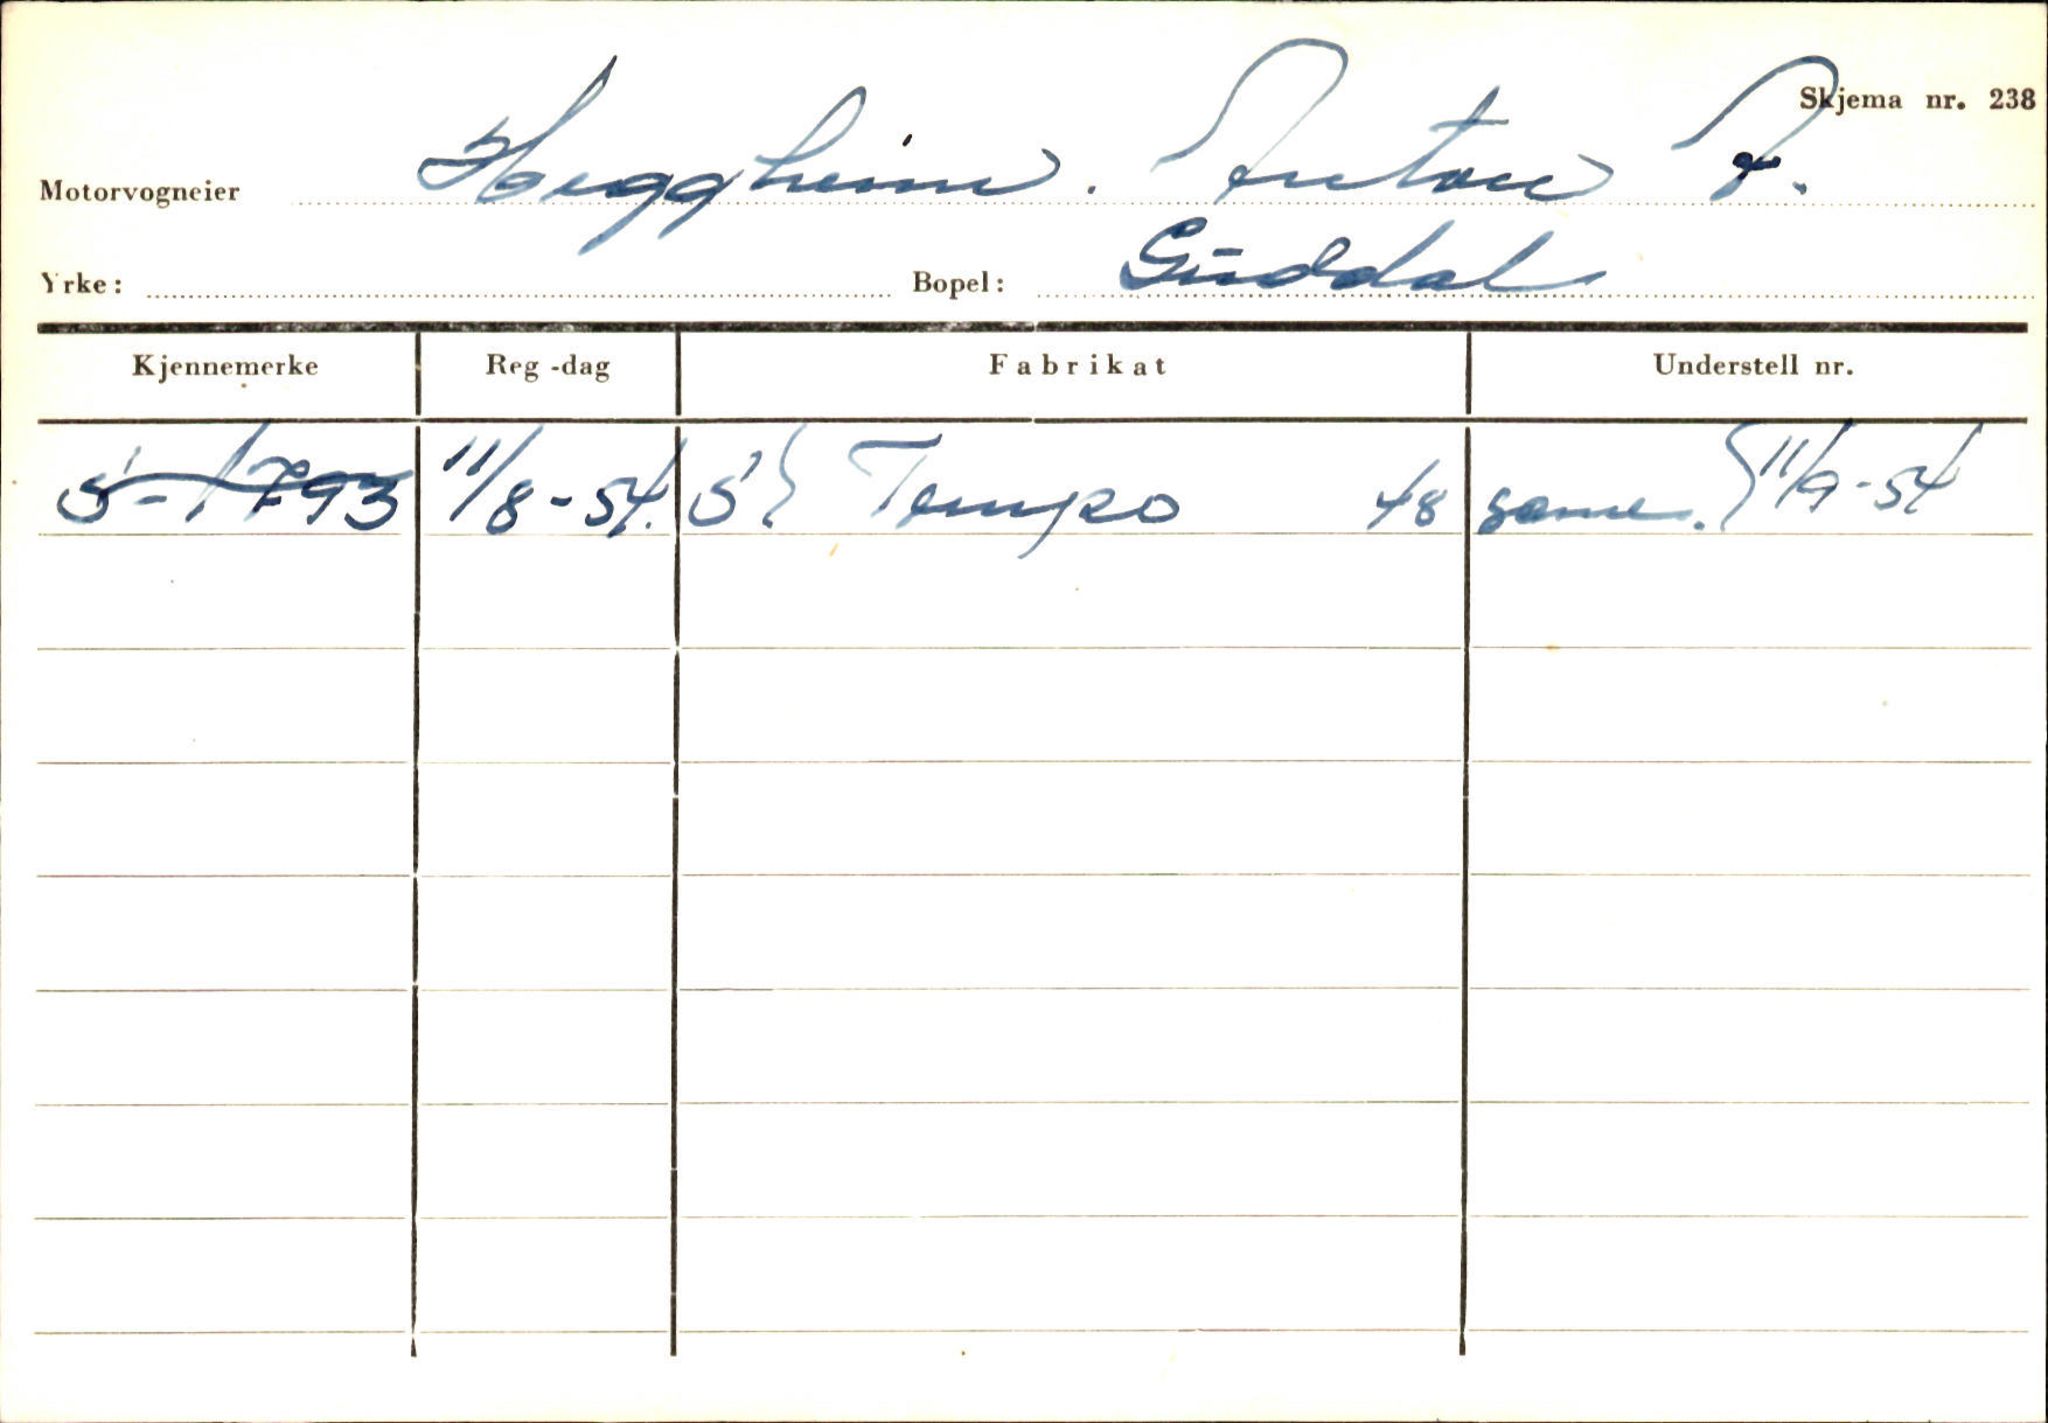 Skjema nr. 238
Motorvogneier Heggheim. Anton A.
Yrke: Bopel: Guddal
Kjennemerke Reg-dag Fabrikat Understell nr.
S-1793 11/8-54. S. Tempo 48 same. 11/9-54